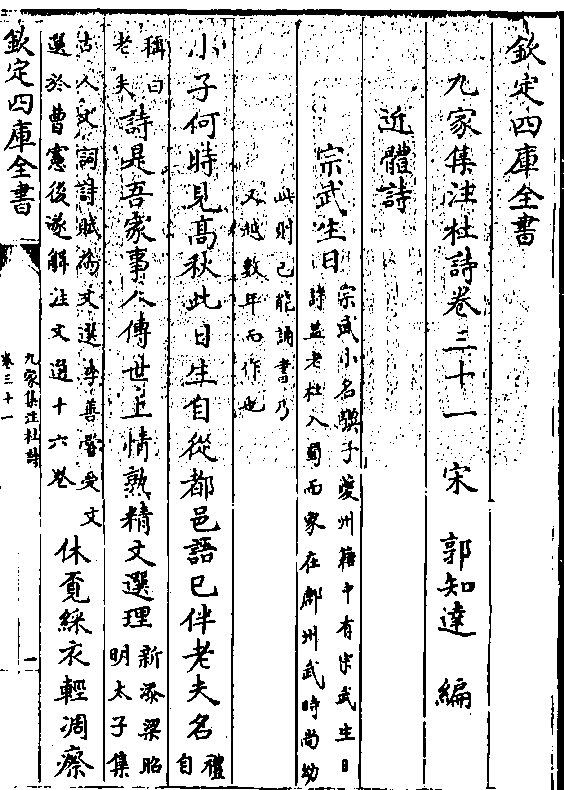 欽定四庫全書
九家集注杜詩卷三十一　宋　郭知達　編
近體詩
宗武生日
宗武小名驥子夔州籍中有宗武生日
詩益老杜入蜀而家在鄜州武時尚幼
此則已能誦書乃
又越數年而作也
小子何時見高秋此日生自從都邑語已伴老夫名
禮
自
稱曰
老夫
詩是吾家事人傳世上情熟精文選理
新添梁昭
明太子集
古人文詞詩賦為文選李善嘗受文
選於曹憲後遂解注文選十六卷
休覓綵衣輕凋瘵
欽定四庫全書
九家集注杜詩
卷三十一
一